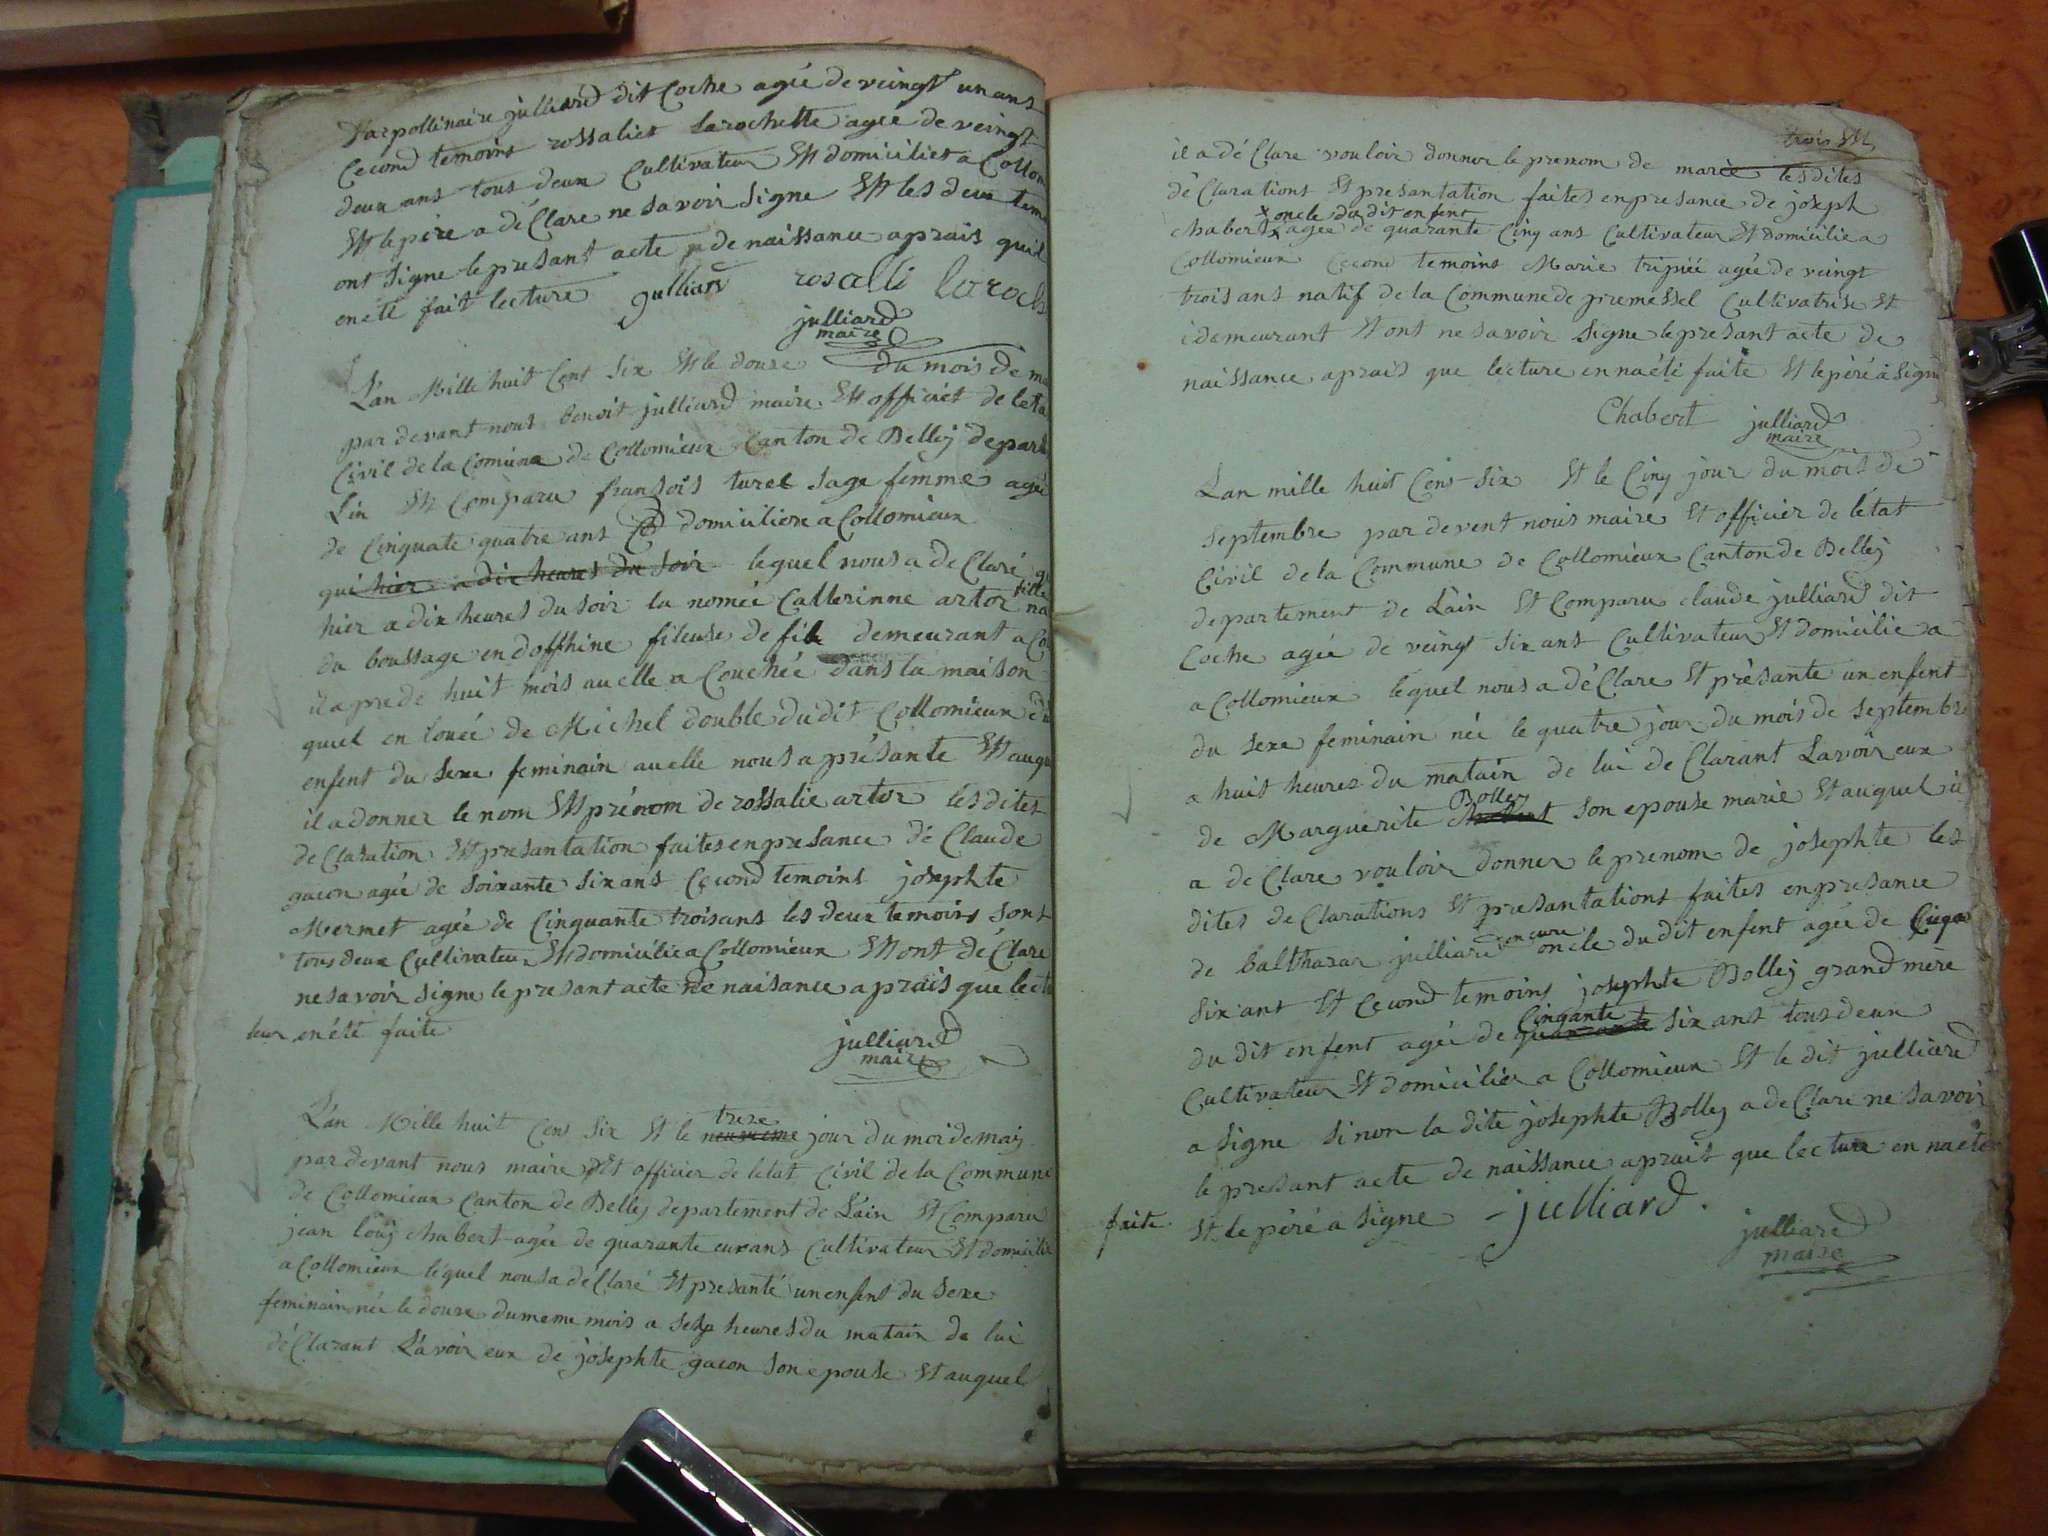 D'arpollinaire julliard dit Coche agée de veingt un ans
Cecond temoins rossalies Larochette agée de veingt
deux ans tous deux Cultivateur Et domicilies a Collom
Et le père a dé Clare ne savoir signe Et les deux tem
ont signe le presant acte de naissance aprais quil
en été fait lecture gulliard rosalli laroch
julliard
maire
L'an Mille huit Cens Six Et le douze du mois de ma
par devant nous benoit julliard maire Et officiet de leta
Civil de la Comuna de Collomieux Canton de Belley depart
Lin Et Comparu fransois turel sage femme agée
de Cinquate quatre ans domiciliere a Collomieux
qui hier a dix heures du soir lequel nous a de Claré
hier a dix heures du soir la nomée Catterinne artor fille na
du boussage en doffhine fileuse de file demeurant a Co
il a pre de huit mois au elle a Couchée dans la maison
quel en louée de Michel double du dit Collomieux du
enfent du sexe feminain au elle nous a présante Et auqu
il a donner le nom Et prénom de rossalie artor les dites
de Claration Et presantation faites en presance dé Claude
gacon agée de soixante six ans Cecond temoins josephte
Mermet agée de Cinquante trois ans les deux temoins sont
tous deux Cultivateur Et domicilie a Collomieux Et ont dé Clare
ne savoir signe le presant acte de naisance aprais que lectu
leur en été faite
julliard
maire
L'an Mille huit Cens Six Et le neuvieme treze jour du moi de May
par devant nous maire Et officier de letat Civil de la Commune
de Collomieux Canton de Belley departement de L'ain Et Comparu
jean louy Chabert agée de quarante eux ans Cultivateur Et domicilie
a Collomieux léquel nous a dé Claré Et presanté un enfent du sexe
feminain née le douze du meme mois a sesp heures du matain de lui
dé Clarant L'avoir eux de josephte gacon son epouse Et auquel
trois
il a dé Clare vouloir donner le prenom de marie les dites
dé Clarations Et presantation faites en presance de joseph
Chabert x oncle du dit enfent agée de quarante Cinq ans Cultivateur Et domicilie a
Collomieux Cecond temoins Marie tripiée agée de veingt
trois ans natif de la Commune de premessel Cultivatrise Et
i demeurant Et ont ne savoir signe le presant acte de
naissance aprais que lecture en na été faite Et le péré a signe
Chabert julliard
maire
L'an mille huit Cens Six Et le Cinq jour du mois de
septembre par devent nous maire Et officier de létat
Civil de la Commune de Collomieux Canton de Belley
departement de L'ain Et Comparu claude julliard dit
Coche agée de veingt six ans Cultivateur Et domicilie a
a Collomieux léquel nous a dé Clare Et présante un enfent
du sexe feminain née le quatre jour du mois de septembre
a huit heures du matain de lui de Clarant Lavoir eux
de Marguerite Chabert Bolley son epouse marie Et auquel il
a de Clare vouloir donner le prenom de josephte les
dites de Clarations Et presantations faites en presance
de balthazar julliard oncle du dit enfent agée de
six ant Et Cecond temoins josephte Bolley grand mère
du dit enfent agée de quarante Cinqante six ans tous deux
Cultivateur Et domicilier a Collomieux Et le dit julliard
a signe sinon la dite josephte Bolley a de Clare ne savoir
le presant acte de naissance aprait que lecture en na été
faite. Et le péré a signe julliard.
julliard
maire